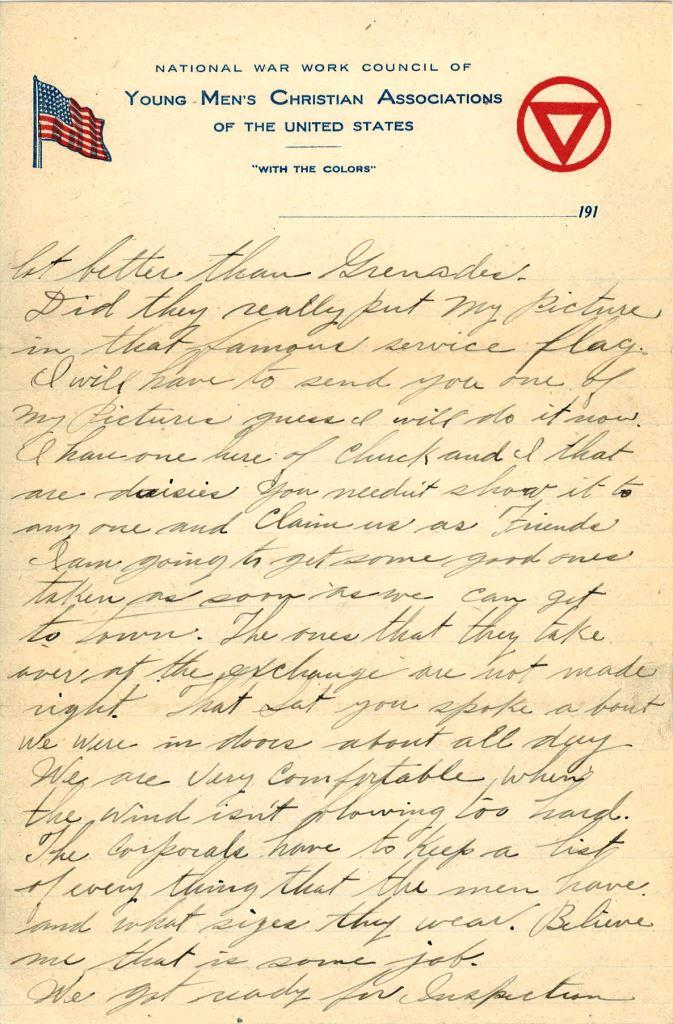 NATIONAL WAR WORK COUNCIL OF
YOUNG MEN'S CHRISTIAN ASSOCIATIONS
OF THE UNITED STATES
"WITH THE COLORS"
191
lot better than Grenades.
Did they really put my picture
in that famous service flag.
I will have to send you one of
my Pictures guess I will do it now.
I have one here of Chuck and I that
are daisies You needn't show it to
any one and Claim us as Friends
I am going to get some good ones
taken as soon as we can get
to town. The ones that they take
over at the exchange are not made
right. That Sat you spoke about
we were in doors about all day
We are very comfortable when
the wind isn't blowing too hard.
The Corporals have to keep a list
of every thing that the men have
and what sizes they wear. Believe
me that is some job.
We got ready for Inspection